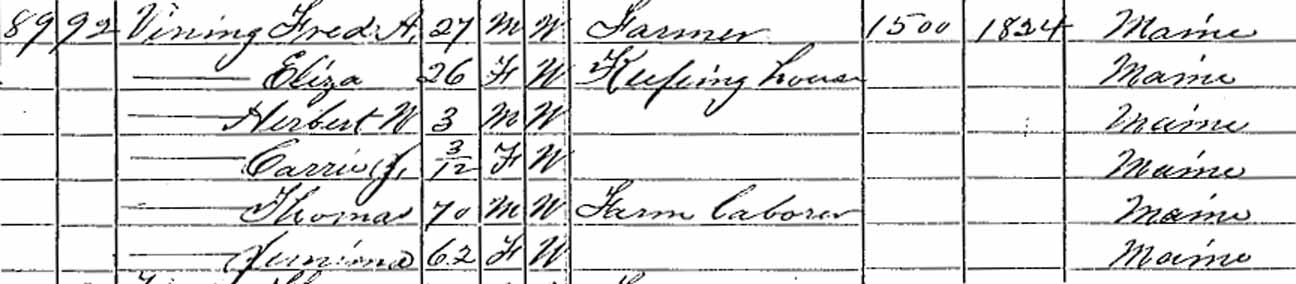 89 92 Vining Fred A, 27 M W Farmer 1500 1824 Maine
Eliza 26 F W Keeping house Maine
Herbert W 3 M W Maine
Carrie 3/12 F W Maine
Thomas 70 M W Farm laborer Maine
62 F W Maine